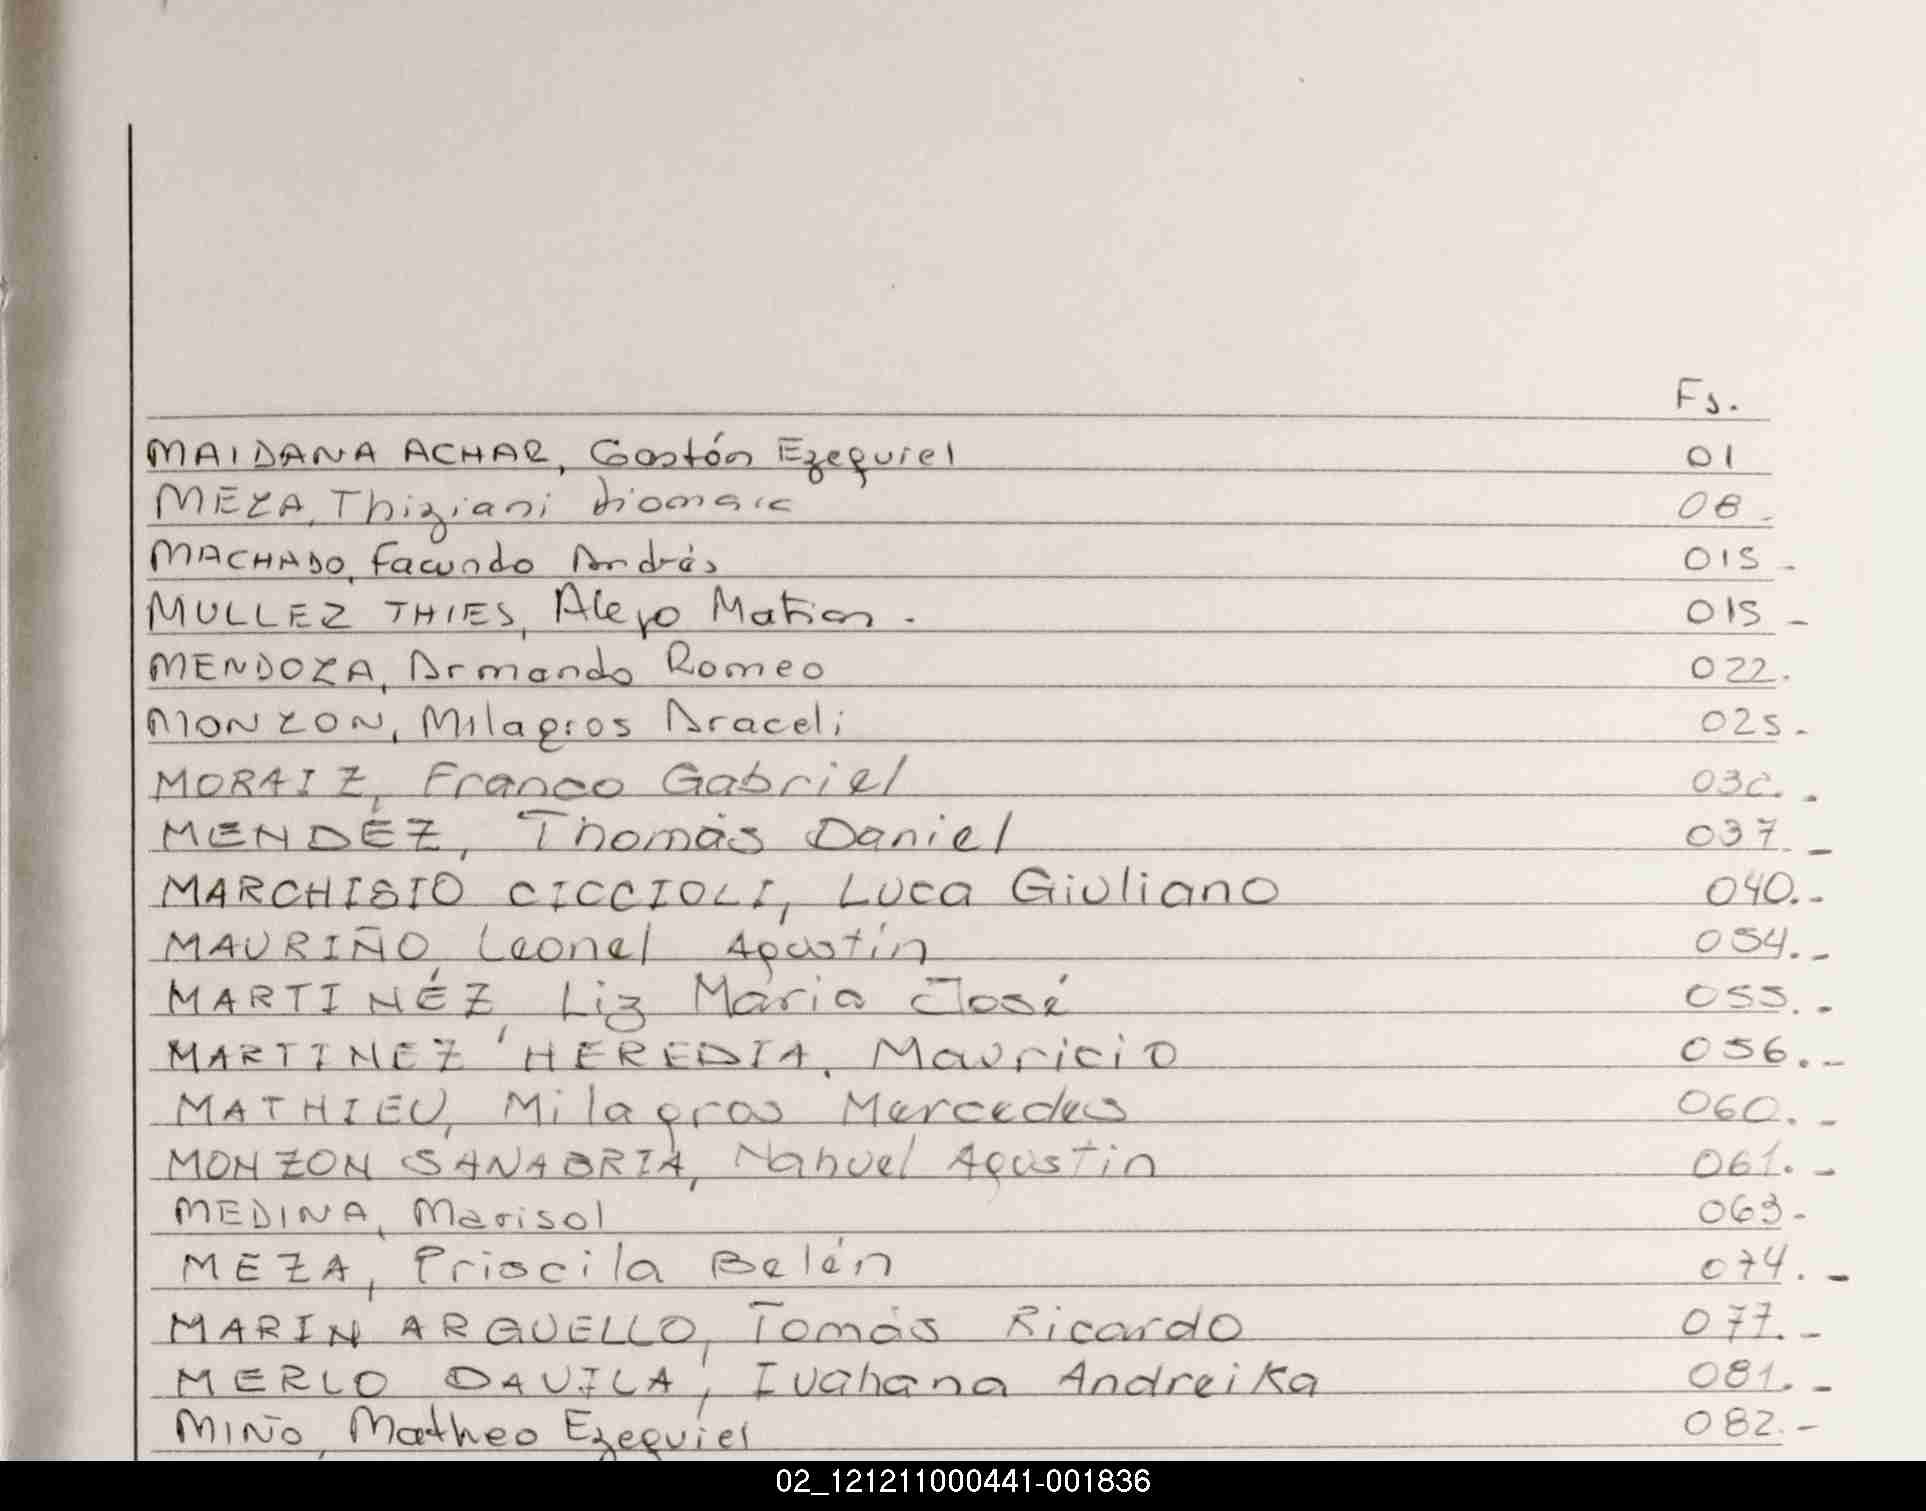 Fs.
MAIDANA ACHAR, Gastón Ezequiel 01
MEZA, Thiziani 08.
MACHADO, Facundo Andrés 015 -
MULLEZ THIES, Alejo Matias. 015 -
MENDOZA, Armando Romeo 022.
MONZON, Milagros Araceli 025.
MORAIZ, Franco Gabriel
MENDÉZ, Thomás Daniel 037._
MARCHISIO CICCIOLI, Luca Giuliano 040.-
MAURIÑO Leonel Agustín 054.-
MARTINÉZ, Liz Maria José 055.-
MARTINEZ HEREDIA, Mauricio 056.-
MATHIEU, Milagros Mercedes 060.-
MONZON SANABRIA, Nahuel Agustin 061.-
MEDINA, Marisol 063-
MEZA, Priscila Belén 074.-
MARIN ARGUELLO, Tomás Ricardo 077.-
MERLO DAVILA, Ivahana Andreika 081.-
MIÑO, Matheo Ezequiel 082.-
02_121211000441-001836